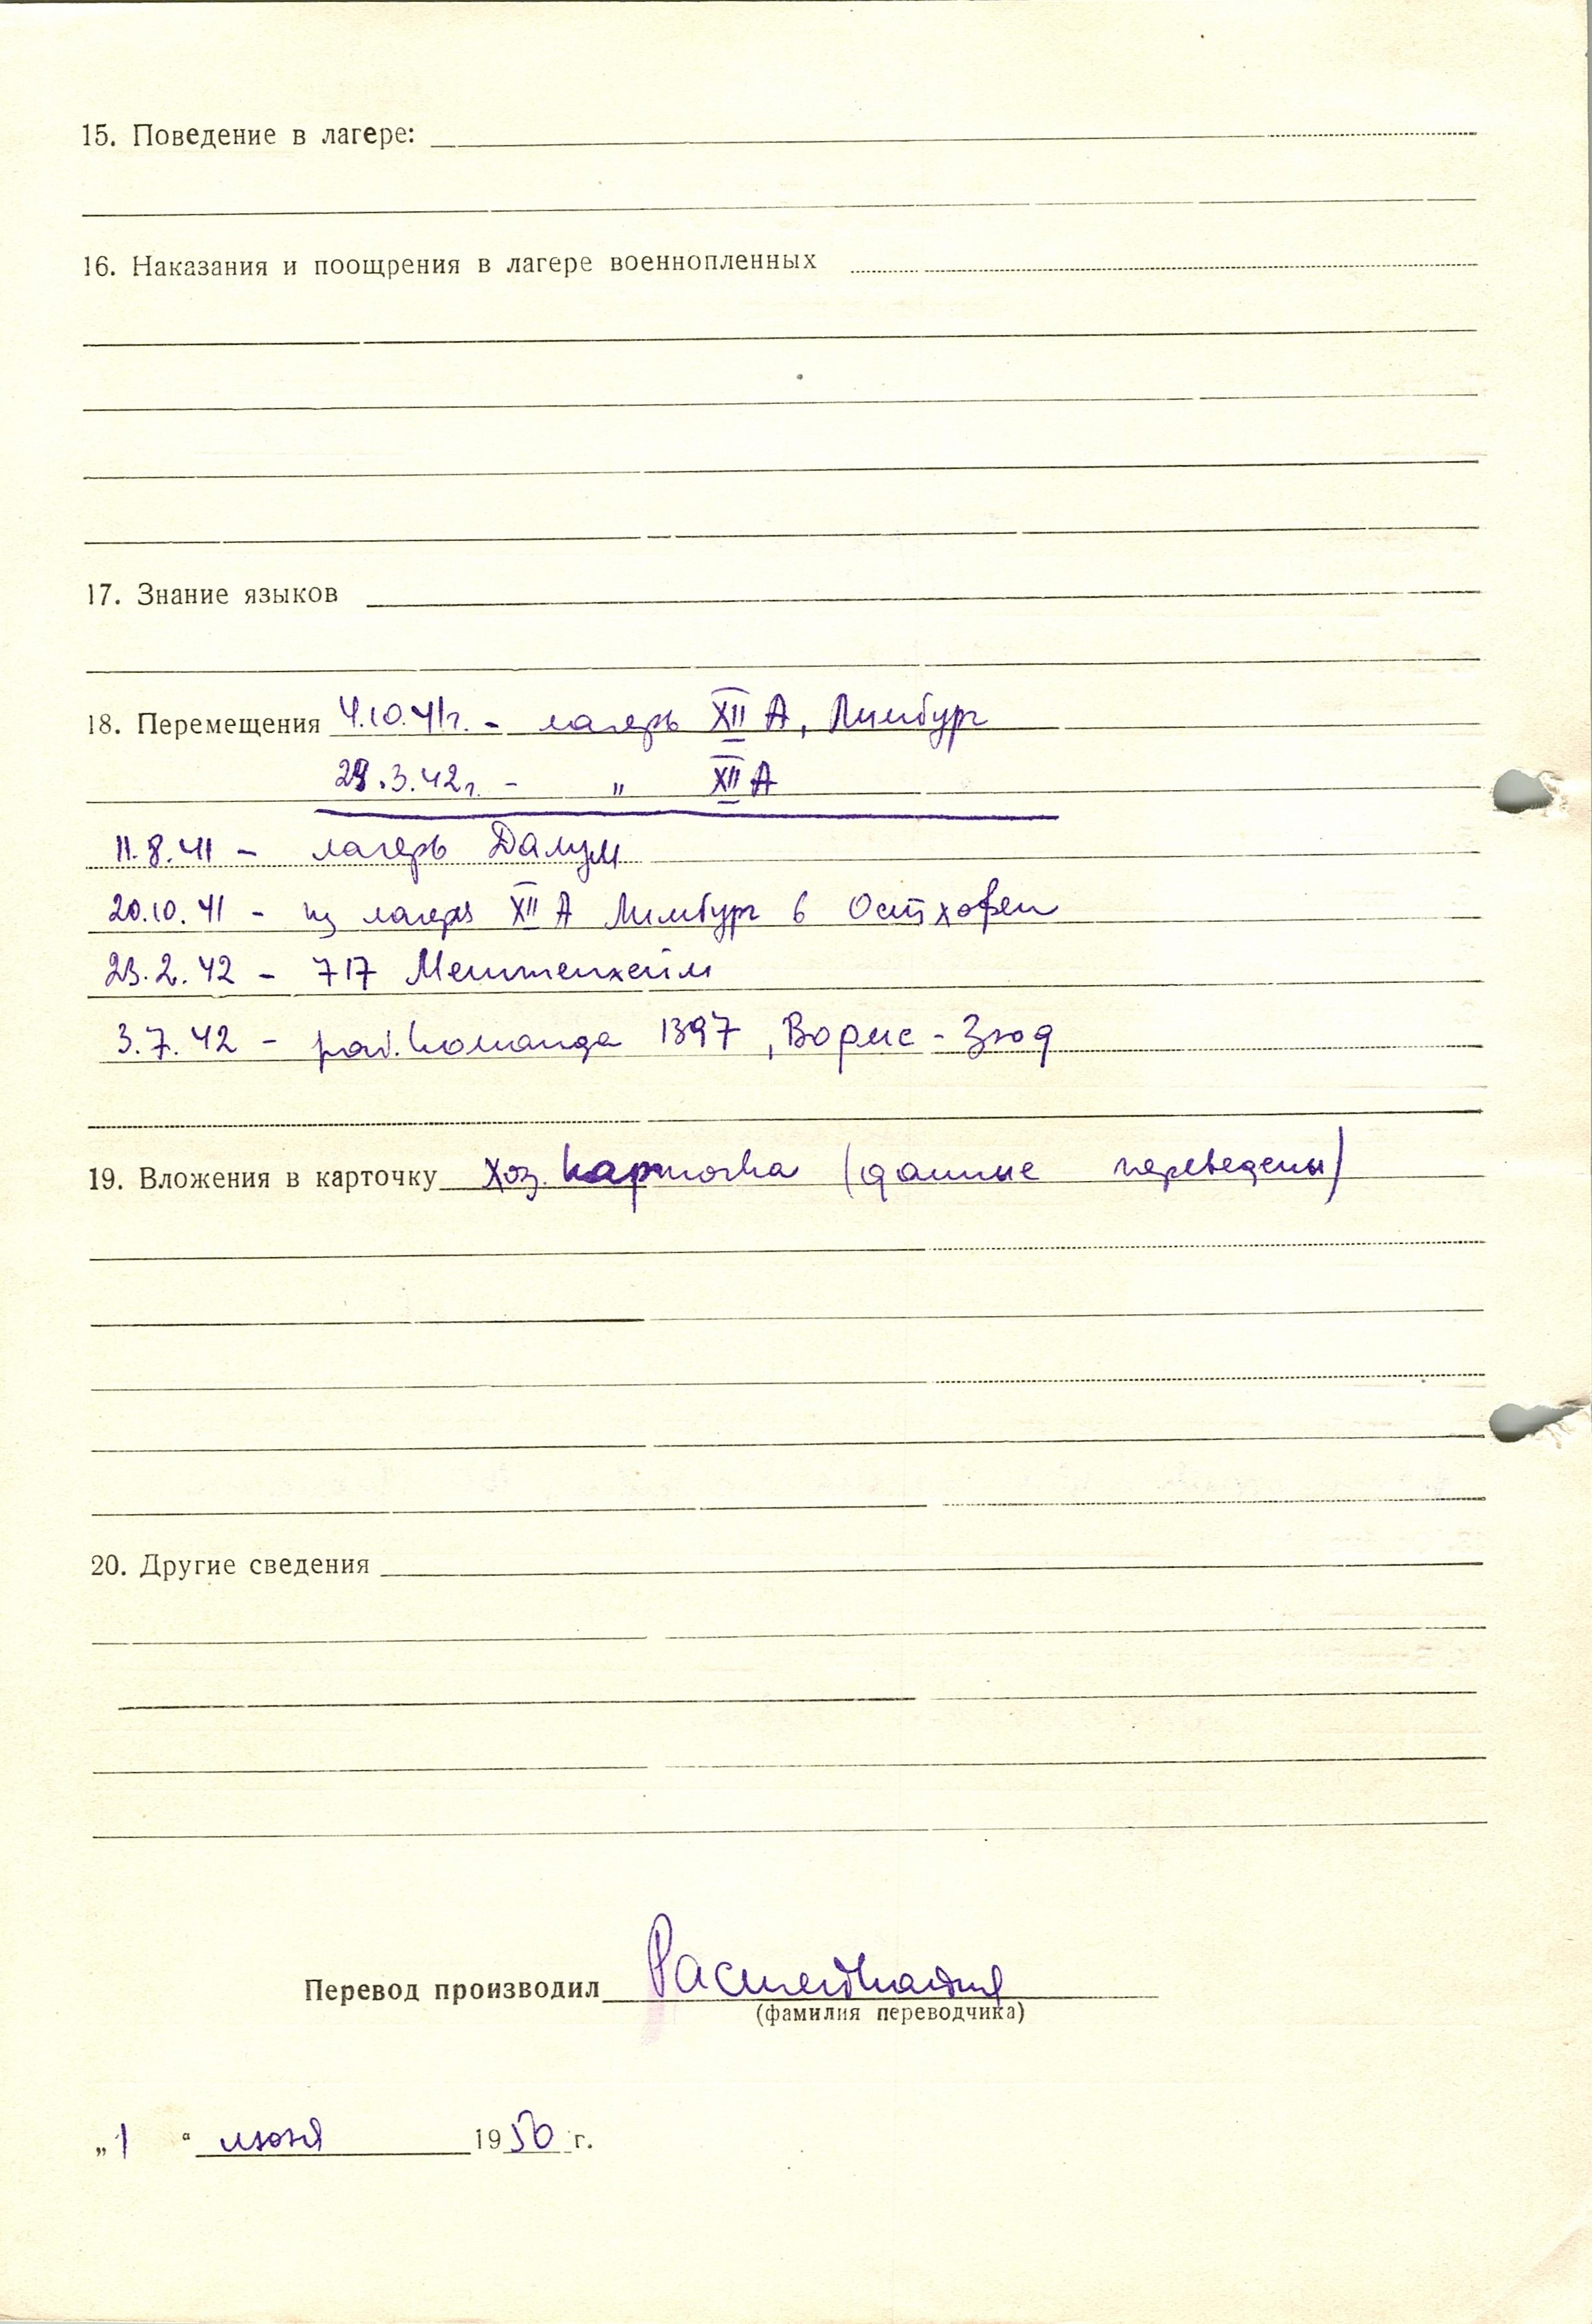 15. Поведение в лагере:
16. Наказания и поощрения в лагере военнопленных
17. Знание языков
18. Перемещения 4.10.41г. - лагерь XII А, Лимбург
29.3.42г. - " XII А
11.8.41 - лагерь Далум
20.10.41 - из лагеря XII А Лимбург в Остхофен
23.2.42 - 717 Меттенхейм
3.7.42 - раб. команда 1397, Вормс-Зюд
19. Вложения в карточку Хоз. карточка (данные переведены)
20. Другие сведения
Перевод производил
(фамилия переводчика)
„1 “ июня 1950 г.